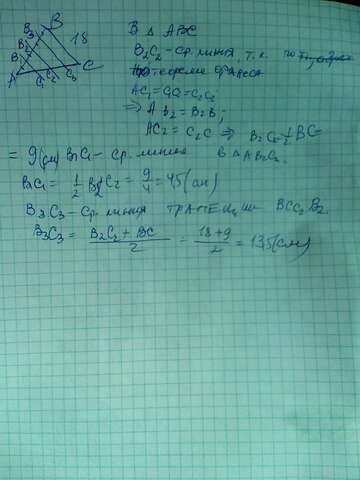 B
18
B3
B2
B1
A
C1
C2
C3
C
В Δ ABC
B2C2 - ср. линия, т.к. по
теореме Фалеса
AC1 =
⇒ A B2 = B2B;
AC2 = C2C ⇒ B2C2 = 1/2 BC =
= 9 (см) B1C1 - ср. линия в Δ AB2C2.
B1C1 = 1/2 B2C2 = 9/ = 45 (см)
B3C3 - ср. линия трапеции BCC2B2.
B3C3 = B2C2 + BC / 2 = 18+9 / 2 = 135 (см)